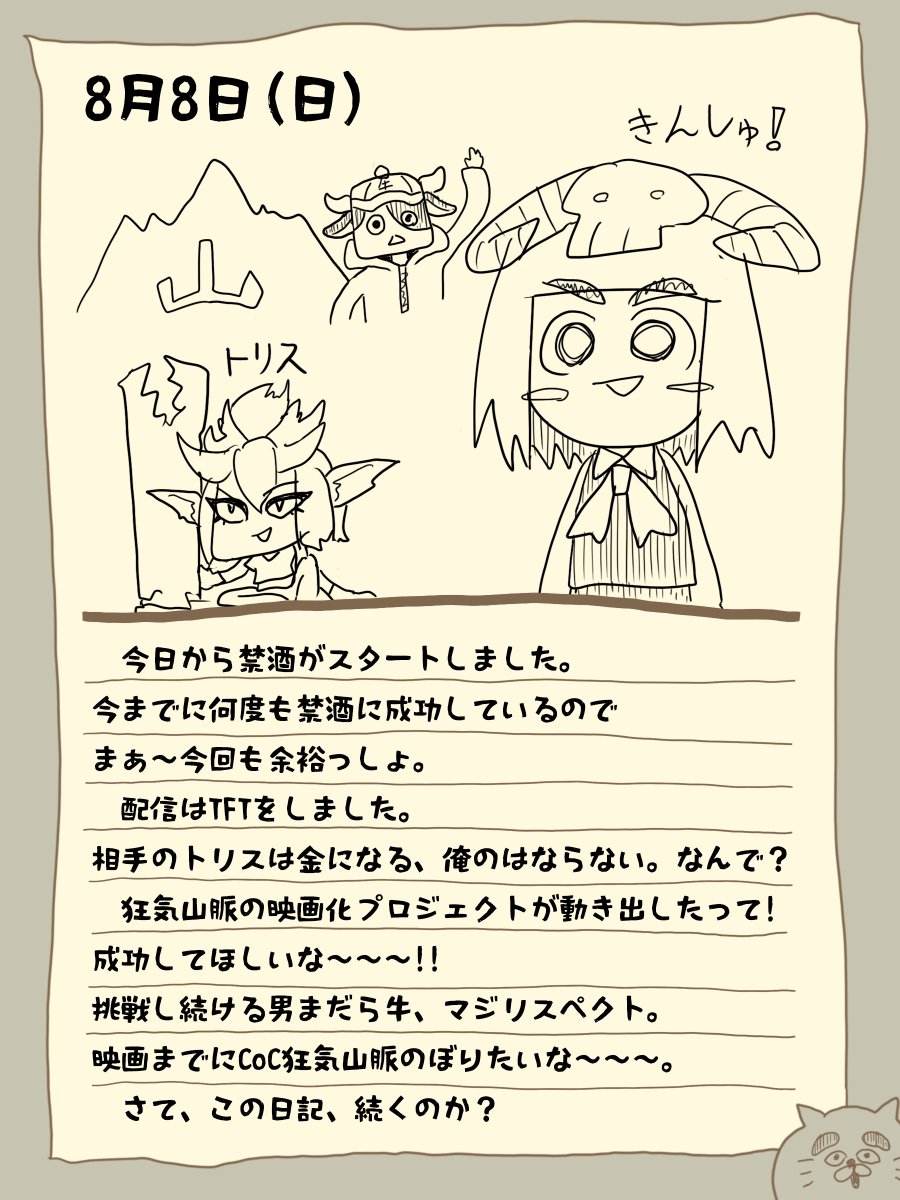 8月8日(日)
きんしゅ!
牛
山
トリス
今日から禁酒がスタートしました。
今までに何度も禁酒に成功しているので
まぁ～今回も余裕っしょ。
配信はTFTをしました。
相手のトリスは金になる、俺のはならない。なんで？
狂気山脈の映画化プロジェクトが動き出したって!
成功してほしいな～～～!!
挑戦し続ける男まだら牛、マジリスペクト。
映画までにCoC狂気山脈のぼりたいな～～～。
さて、この日記、続くのか？